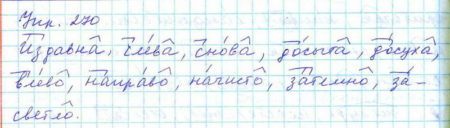 Упр. 270
Издавна, слева, снова, досыта, досуха,
влево, направо, начисто, затемно, за-
светло.